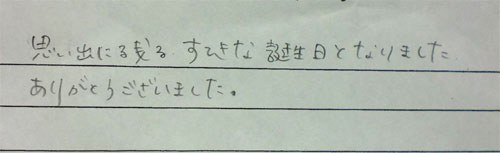 思い出に残る すてきな 誕生日となりました
ありがとうございました。